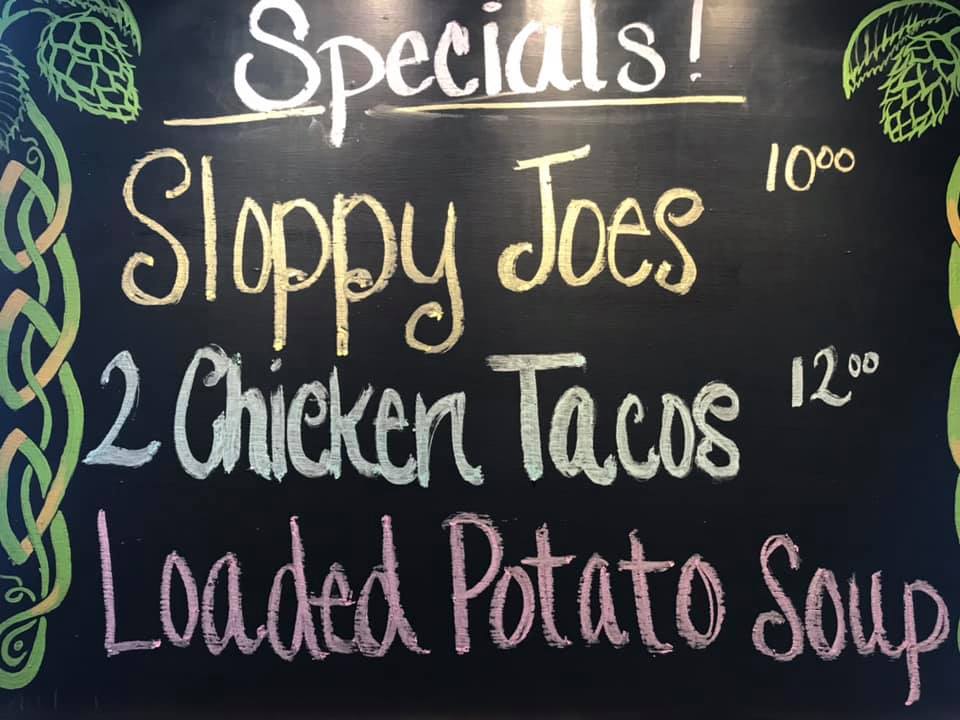 Specials!
Sloppy Joes 10⁰⁰
2 Chicken Tacos 12⁰⁰
Loaded Potato Soup